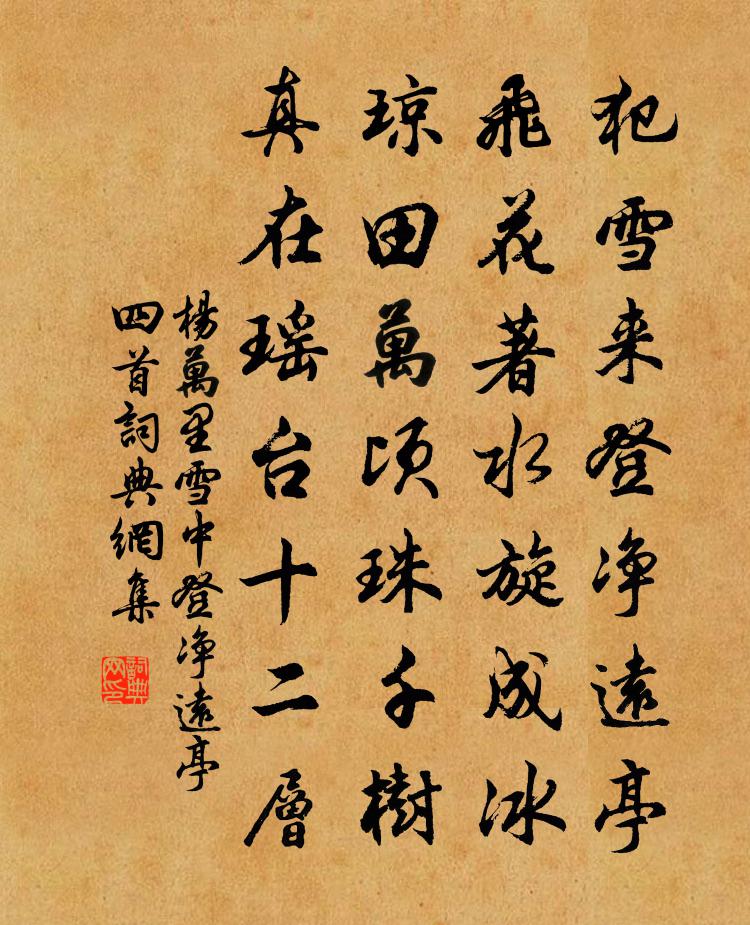 犯雪来登净遠亭
飛花著水旋成冰
琼田萬頃珠千樹
真在瑶台十二層
楊萬里雪中登净遠亭
四首詞典網集
詞典网印